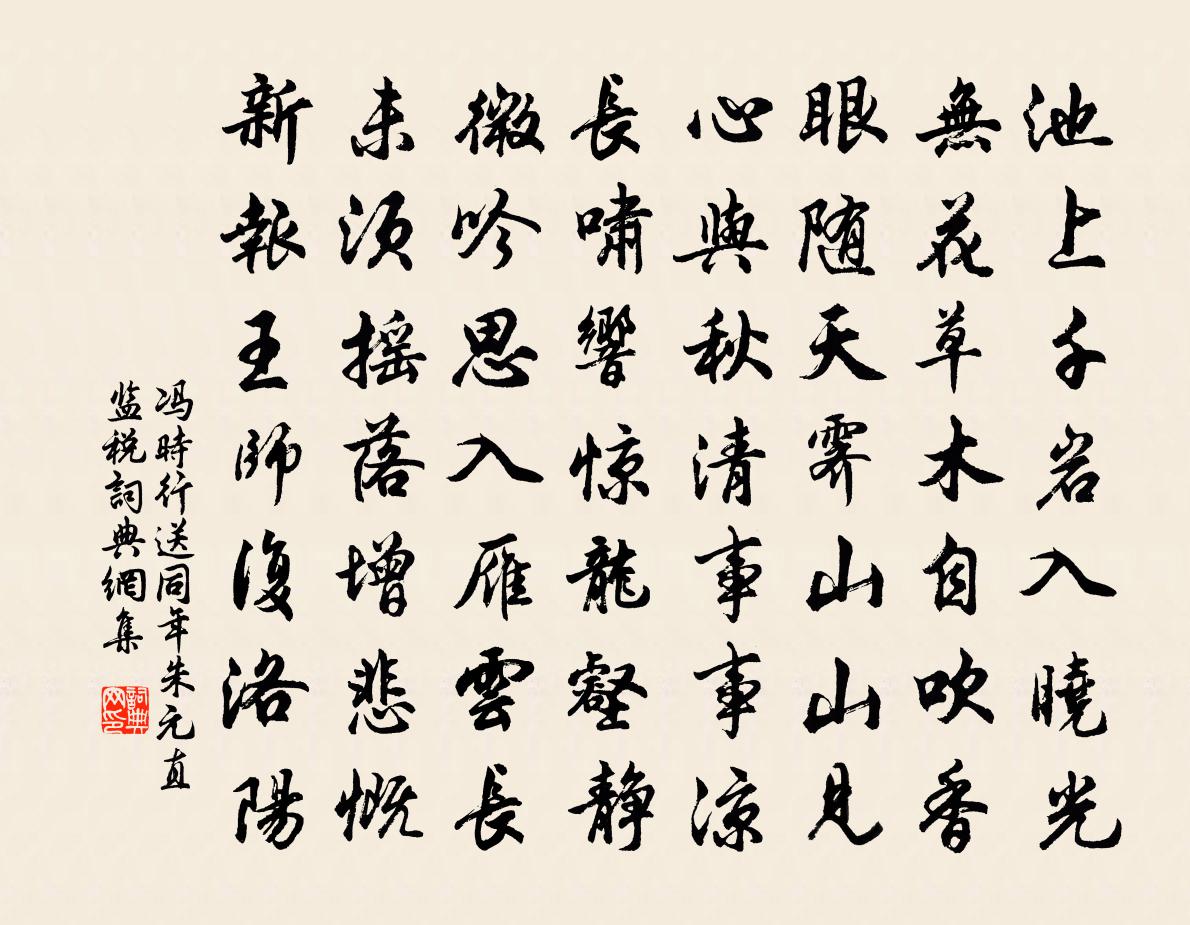 池上千岩入曉光
無花草木自吹香
眼随天霽山山見
心與秋清事事凉
長嘯響惊龍壑静
微吟思入雁雲長
未須摇落增悲慨
新報王師復洛陽
冯時行送同年朱元直
监税詞典網集
詞典网印